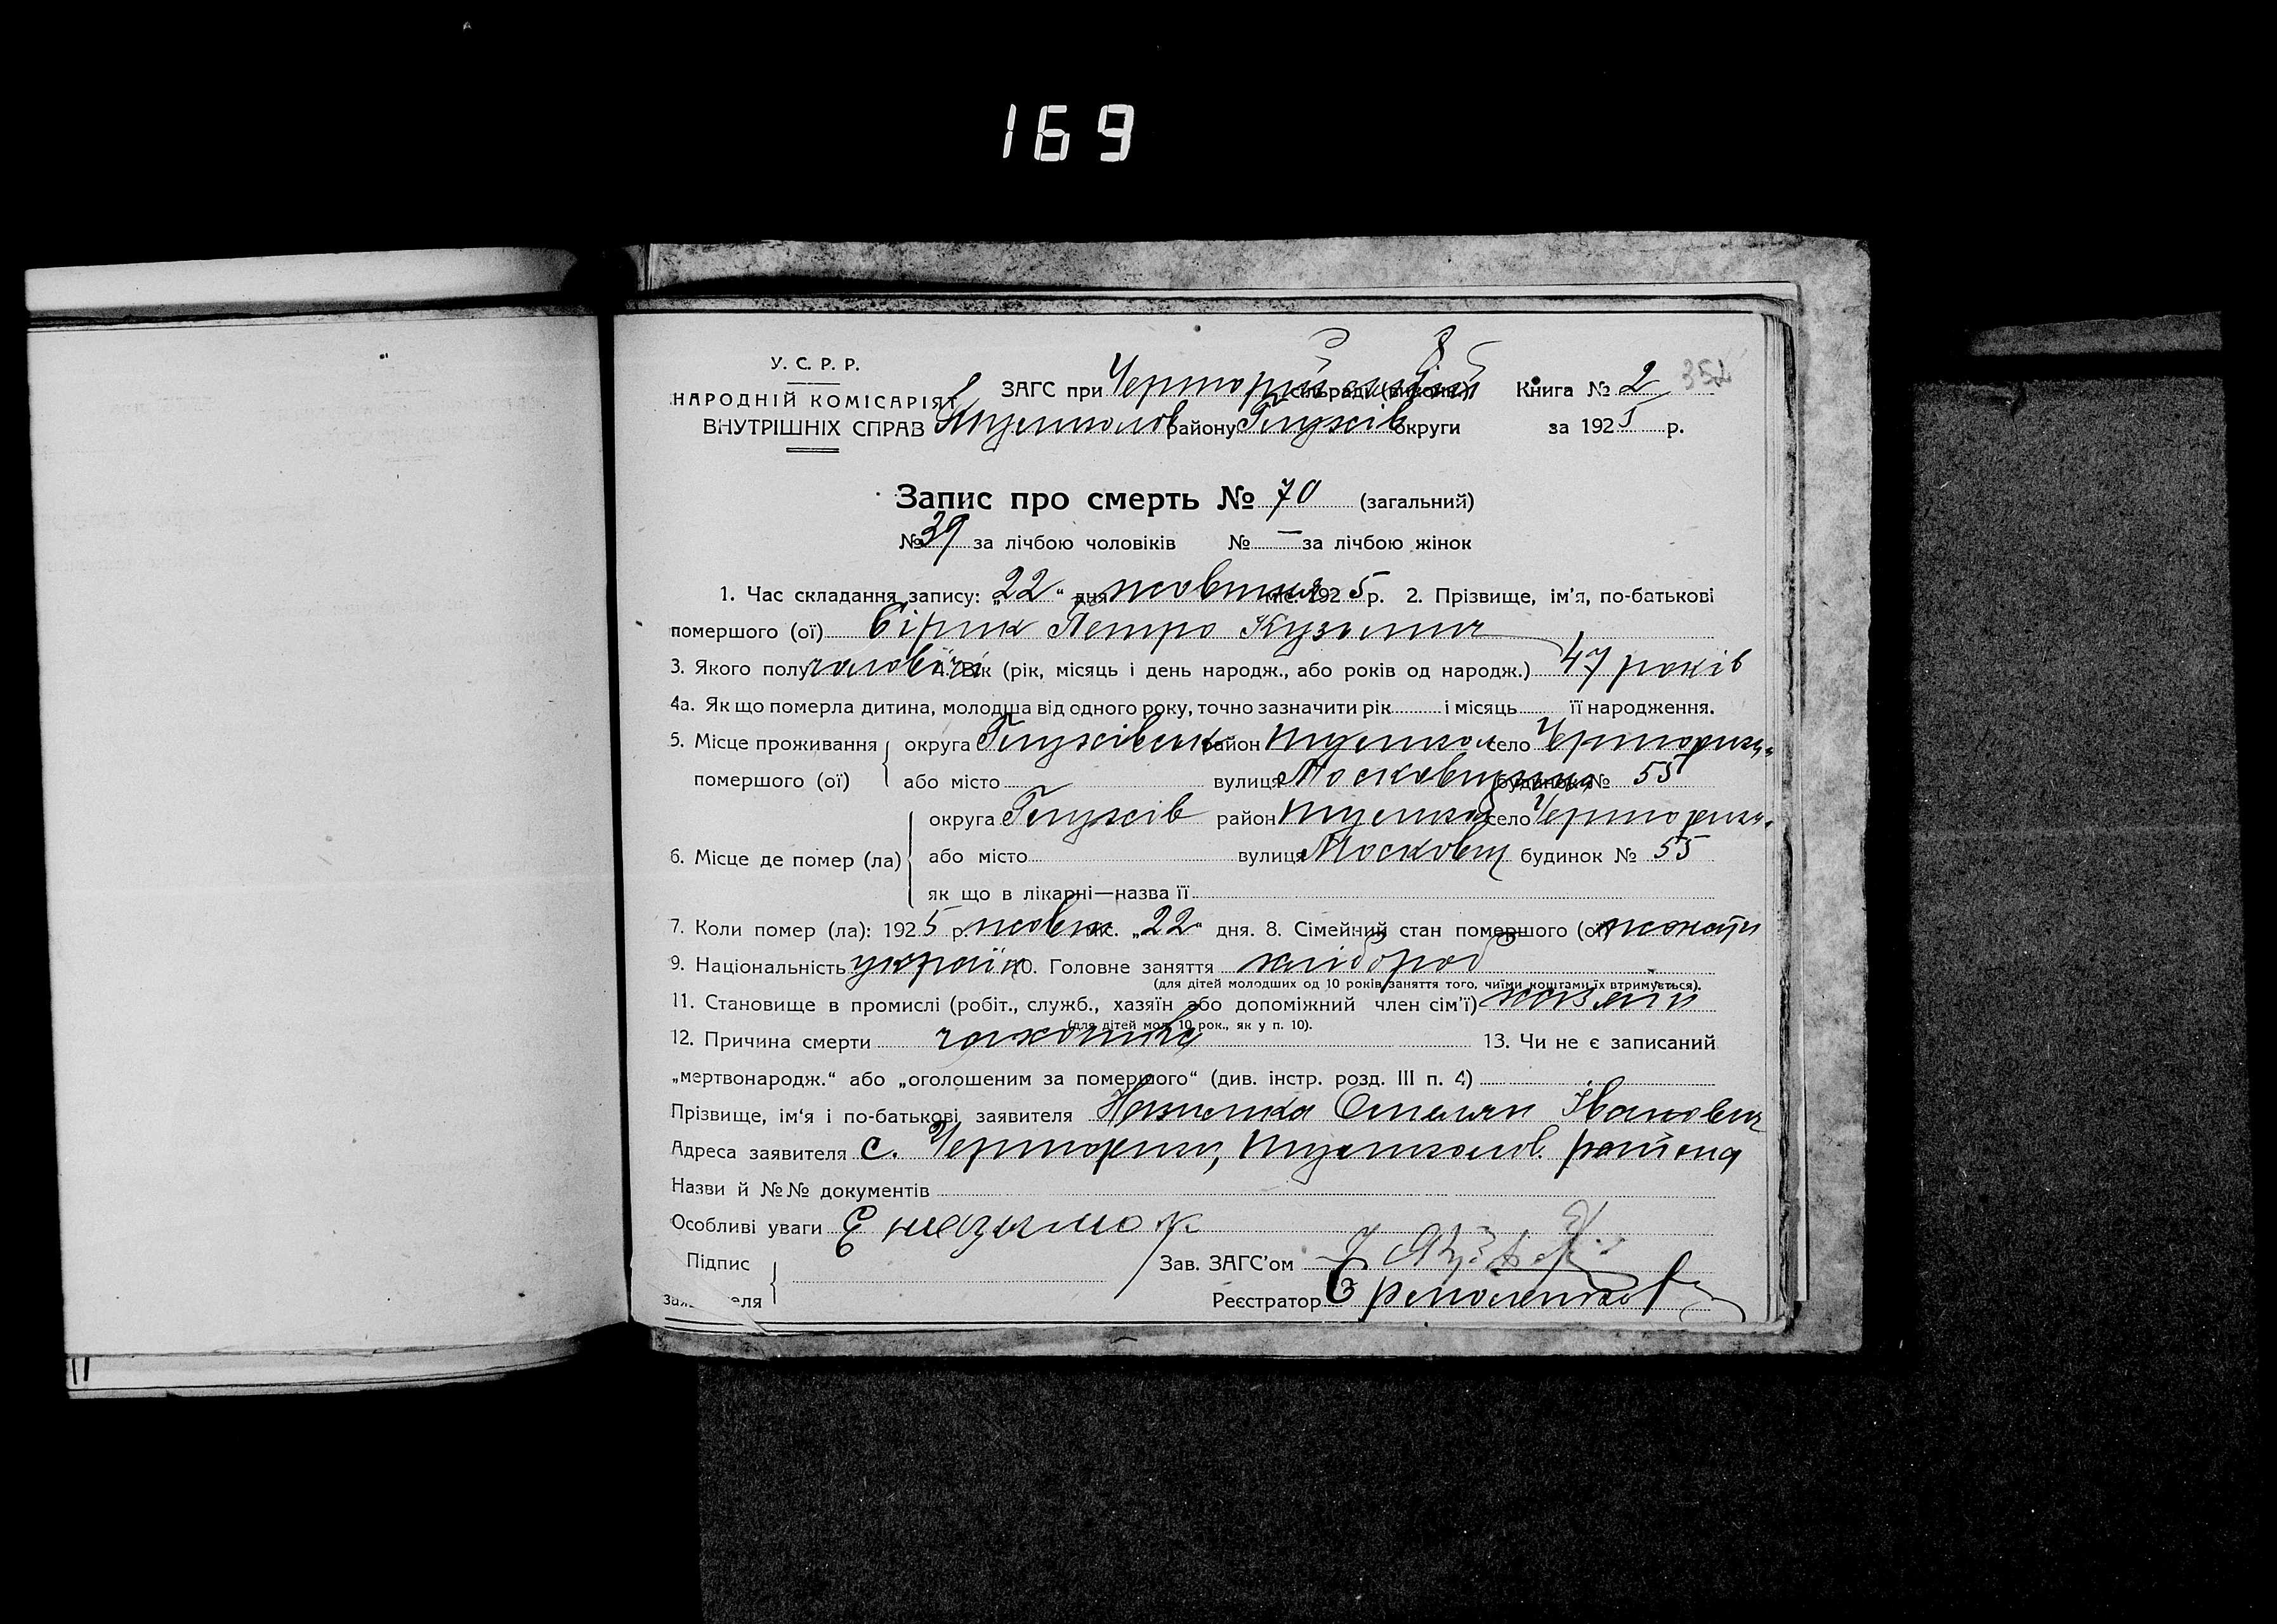 169
У. С. Р. Р.
НАРОДНІЙ КОМІСАРІЯТ
ВНУТРІШНІХ СПРАВ
ЗАГС при сільраді (викони) Книга № 2 352
району Глухів округи за 1925 р.
Запис про смерть № 70 (загальний)
№ 39 за лічбою чоловіків № — за лічбою жінок
1. Час складання запису: „22“ дня жовтня міс. 1925 р. 2. Прізвище, ім'я, по-батькові
помершого (ої) Сірик Петро Кузьмич
3. Якого полу чоловічої 4. Вік (рік, місяць і день народж., або років од народж.) 47 років
4а. Як що померла дитина, молодша від одного року, точно зазначити рік і місяць її народження.
5. Місце проживання округа Глухівськ район село
помершого (ої) або місто вулиця будинок № 55
округа Глухів район село
6. Місце де помер (ла) або місто вулиця будинок № 55
як що в лікарні—назва її
7. Коли помер (ла): 1925 р. жовтн міс. „22“ дня. 8. Сімейний стан помершого (ої) жонати
9. Національність україн 10. Головне заняття хлібороб
(для дітей молодших од 10 років, заняття того, чиїми коштами їх втримується).
11. Становище в промислі (робіт., служб., хазяїн або допоміжний член сім'ї) хазяїн
(для дітей мол. 10 рок., як у п. 10).
12. Причина смерти чахотка 13. Чи не є записаний
„мертвонародж.“ або „оголошеним за помершого“ (див. інстр. розд. III п. 4)
Прізвище, ім'я і по-батькові заявителя Омелян Іванович
Адреса заявителя с. району
Назви й №№ документів
Особливі уваги
Підпис Зав. ЗАГС'ом
Реєстратор